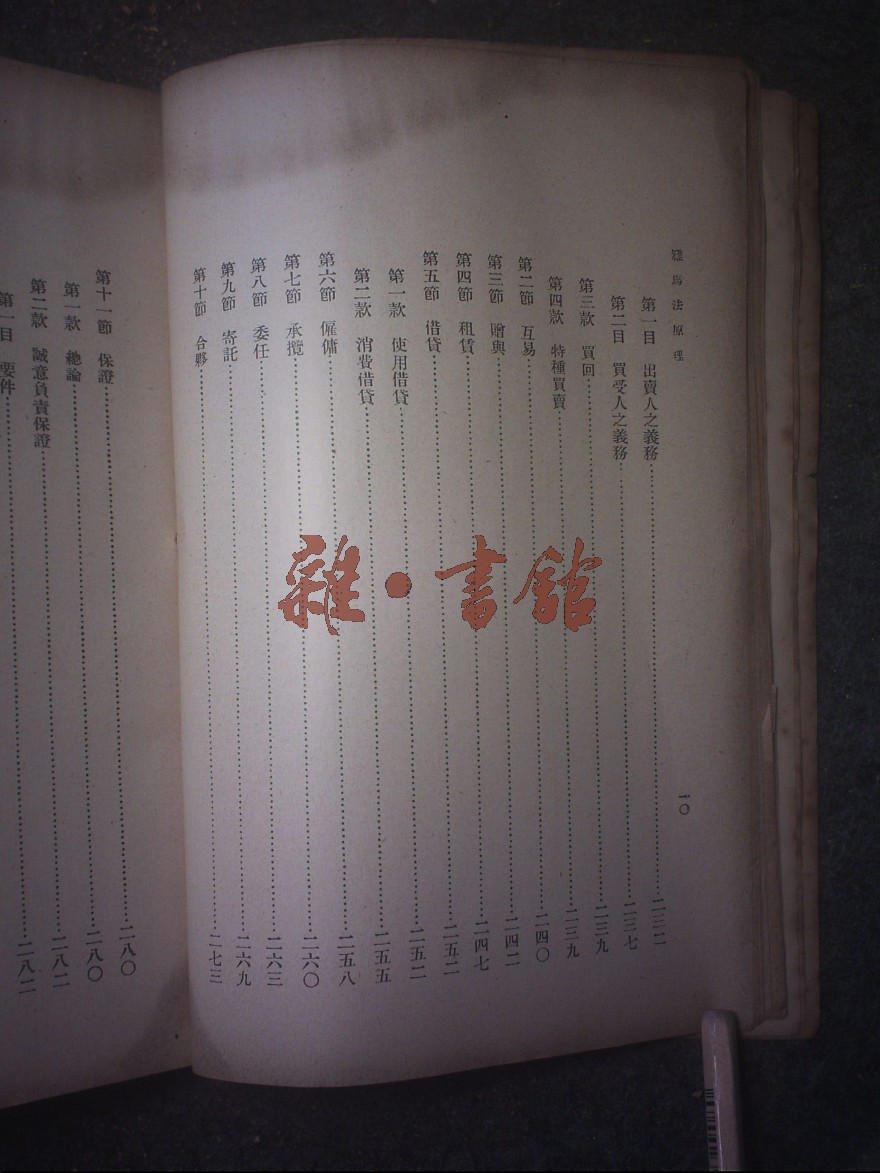 羅馬法原理
一〇
第一目 出賣人之義務……二三二
第二目 買受人之義務……二三七
第三款 買回……二三九
第四款 特種買賣……二三九
第二節 互易……二四〇
第三節 贈與……二四二
第四節 租賃……二四七
第五節 借貸……二五二
第一款 使用借貸……二五二
第二款 消費借貸……二五五
第六節 僱傭……二五八
第七節 承攬……二六〇
第八節 委任……二六三
第九節 寄託……二六九
第十節 合夥……二七三
第十一節 保證……二八〇
第一款 總論……二八〇
第二款 誠意負責保證……二八二
第一目 要件……二八二
雜·書館